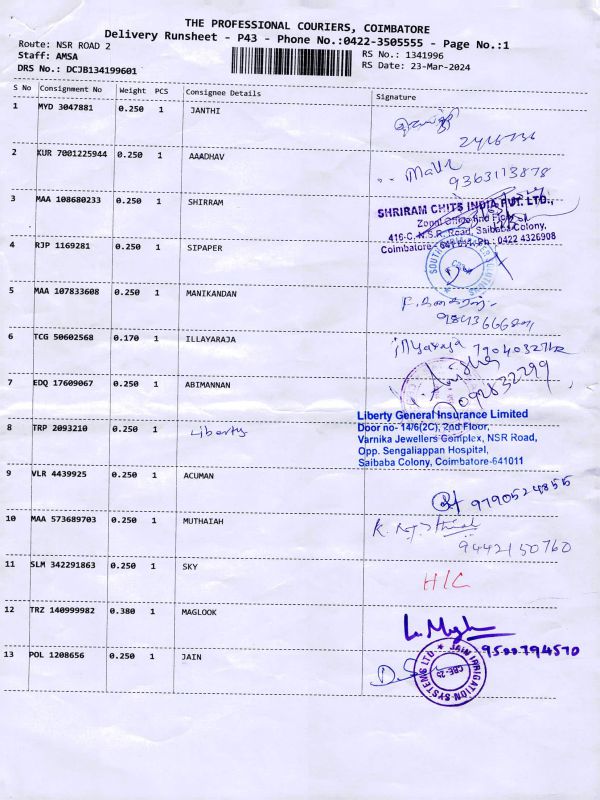 THE PROFESSIONAL COURIERS, COIMBATORE
Delivery Runsheet - P43 - Phone No.:0422-3505555 - Page No.:1
Route: NSR ROAD 2 RS No.: 1341996
Staff: AMSA RS Date: 23-Mar-2024
DRS No.: DCJB134199601
S No Consignment No Weight PCS Consignee Details Signature
1 MYD 3047881 0.250 1 JANTHI
2 KUR 7001225944 0.250 1 AAADHAV
9363113878
3 MAA 108680233 0.250 1 SHIRRAM
SHRIRAM CHITS INDIA PVT. LTD.,
Zonal Office 2nd Floor
416-C, N.S.R. Road, Saibaba Colony,
4 RJP 1169281 0.250 1 SIPAPER
Coimbatore - 641 011. Ph : 0422 4326908
5 MAA 107833608 0.250 1 MANIKANDAN
6 TCG 50602568 0.170 1 ILLAYARAJA
7 EDQ 17609067 0.250 1 ABIMANNAN
8 TRP 2093210 0.250 1 Liberty
Liberty General Insurance Limited
Door no- 14/6(2C), 2nd Floor,
Varnika Jewellers Complex, NSR Road,
Opp. Sengaliappan Hospital,
Saibaba Colony, Coimbatore-641011
9 VLR 4439925 0.250 1 ACUMAN
9790524855
10 MAA 573689703 0.250 1 MUTHAIAH
9442150760
11 SLM 342291863 0.250 1 SKY
H/C
12 TRZ 140999982 0.380 1 MAGLOOK
9500794570
13 POL 1208656 0.250 1 JAIN
JAIN IRRIGATION SYSTEMS LTD
CBE-25